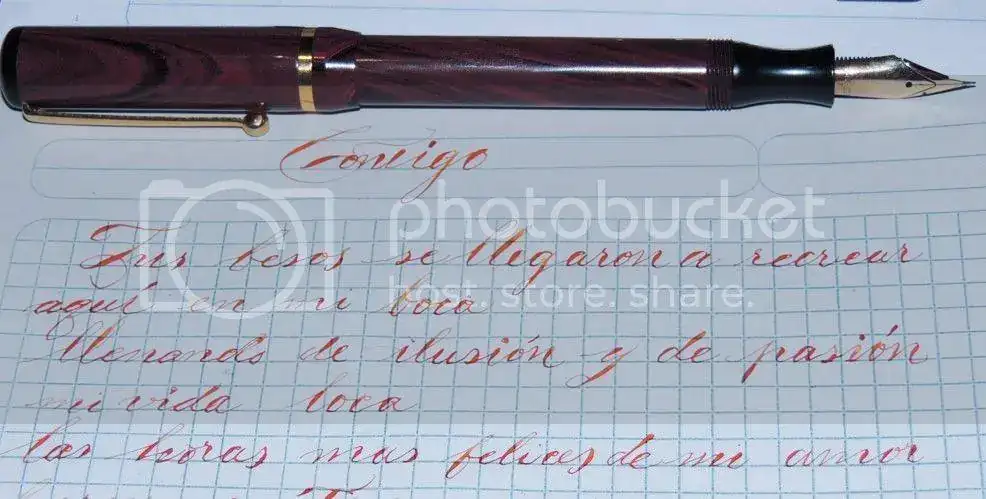 Contigo
Tus besos se llegaron a recrear
aquí en mi boca
llenando de ilusión y de pasión
mi vida loca
las horas mas felices de mi amor
photobucket
host. store. share.